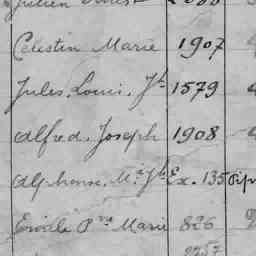 Julien
Célestin Marie 1907
Jules. Louis. Jh 1579
Alfred. Joseph 1908
Alphonse. Mie Jh Ex. 135
Emile Pre Marie 826
2257